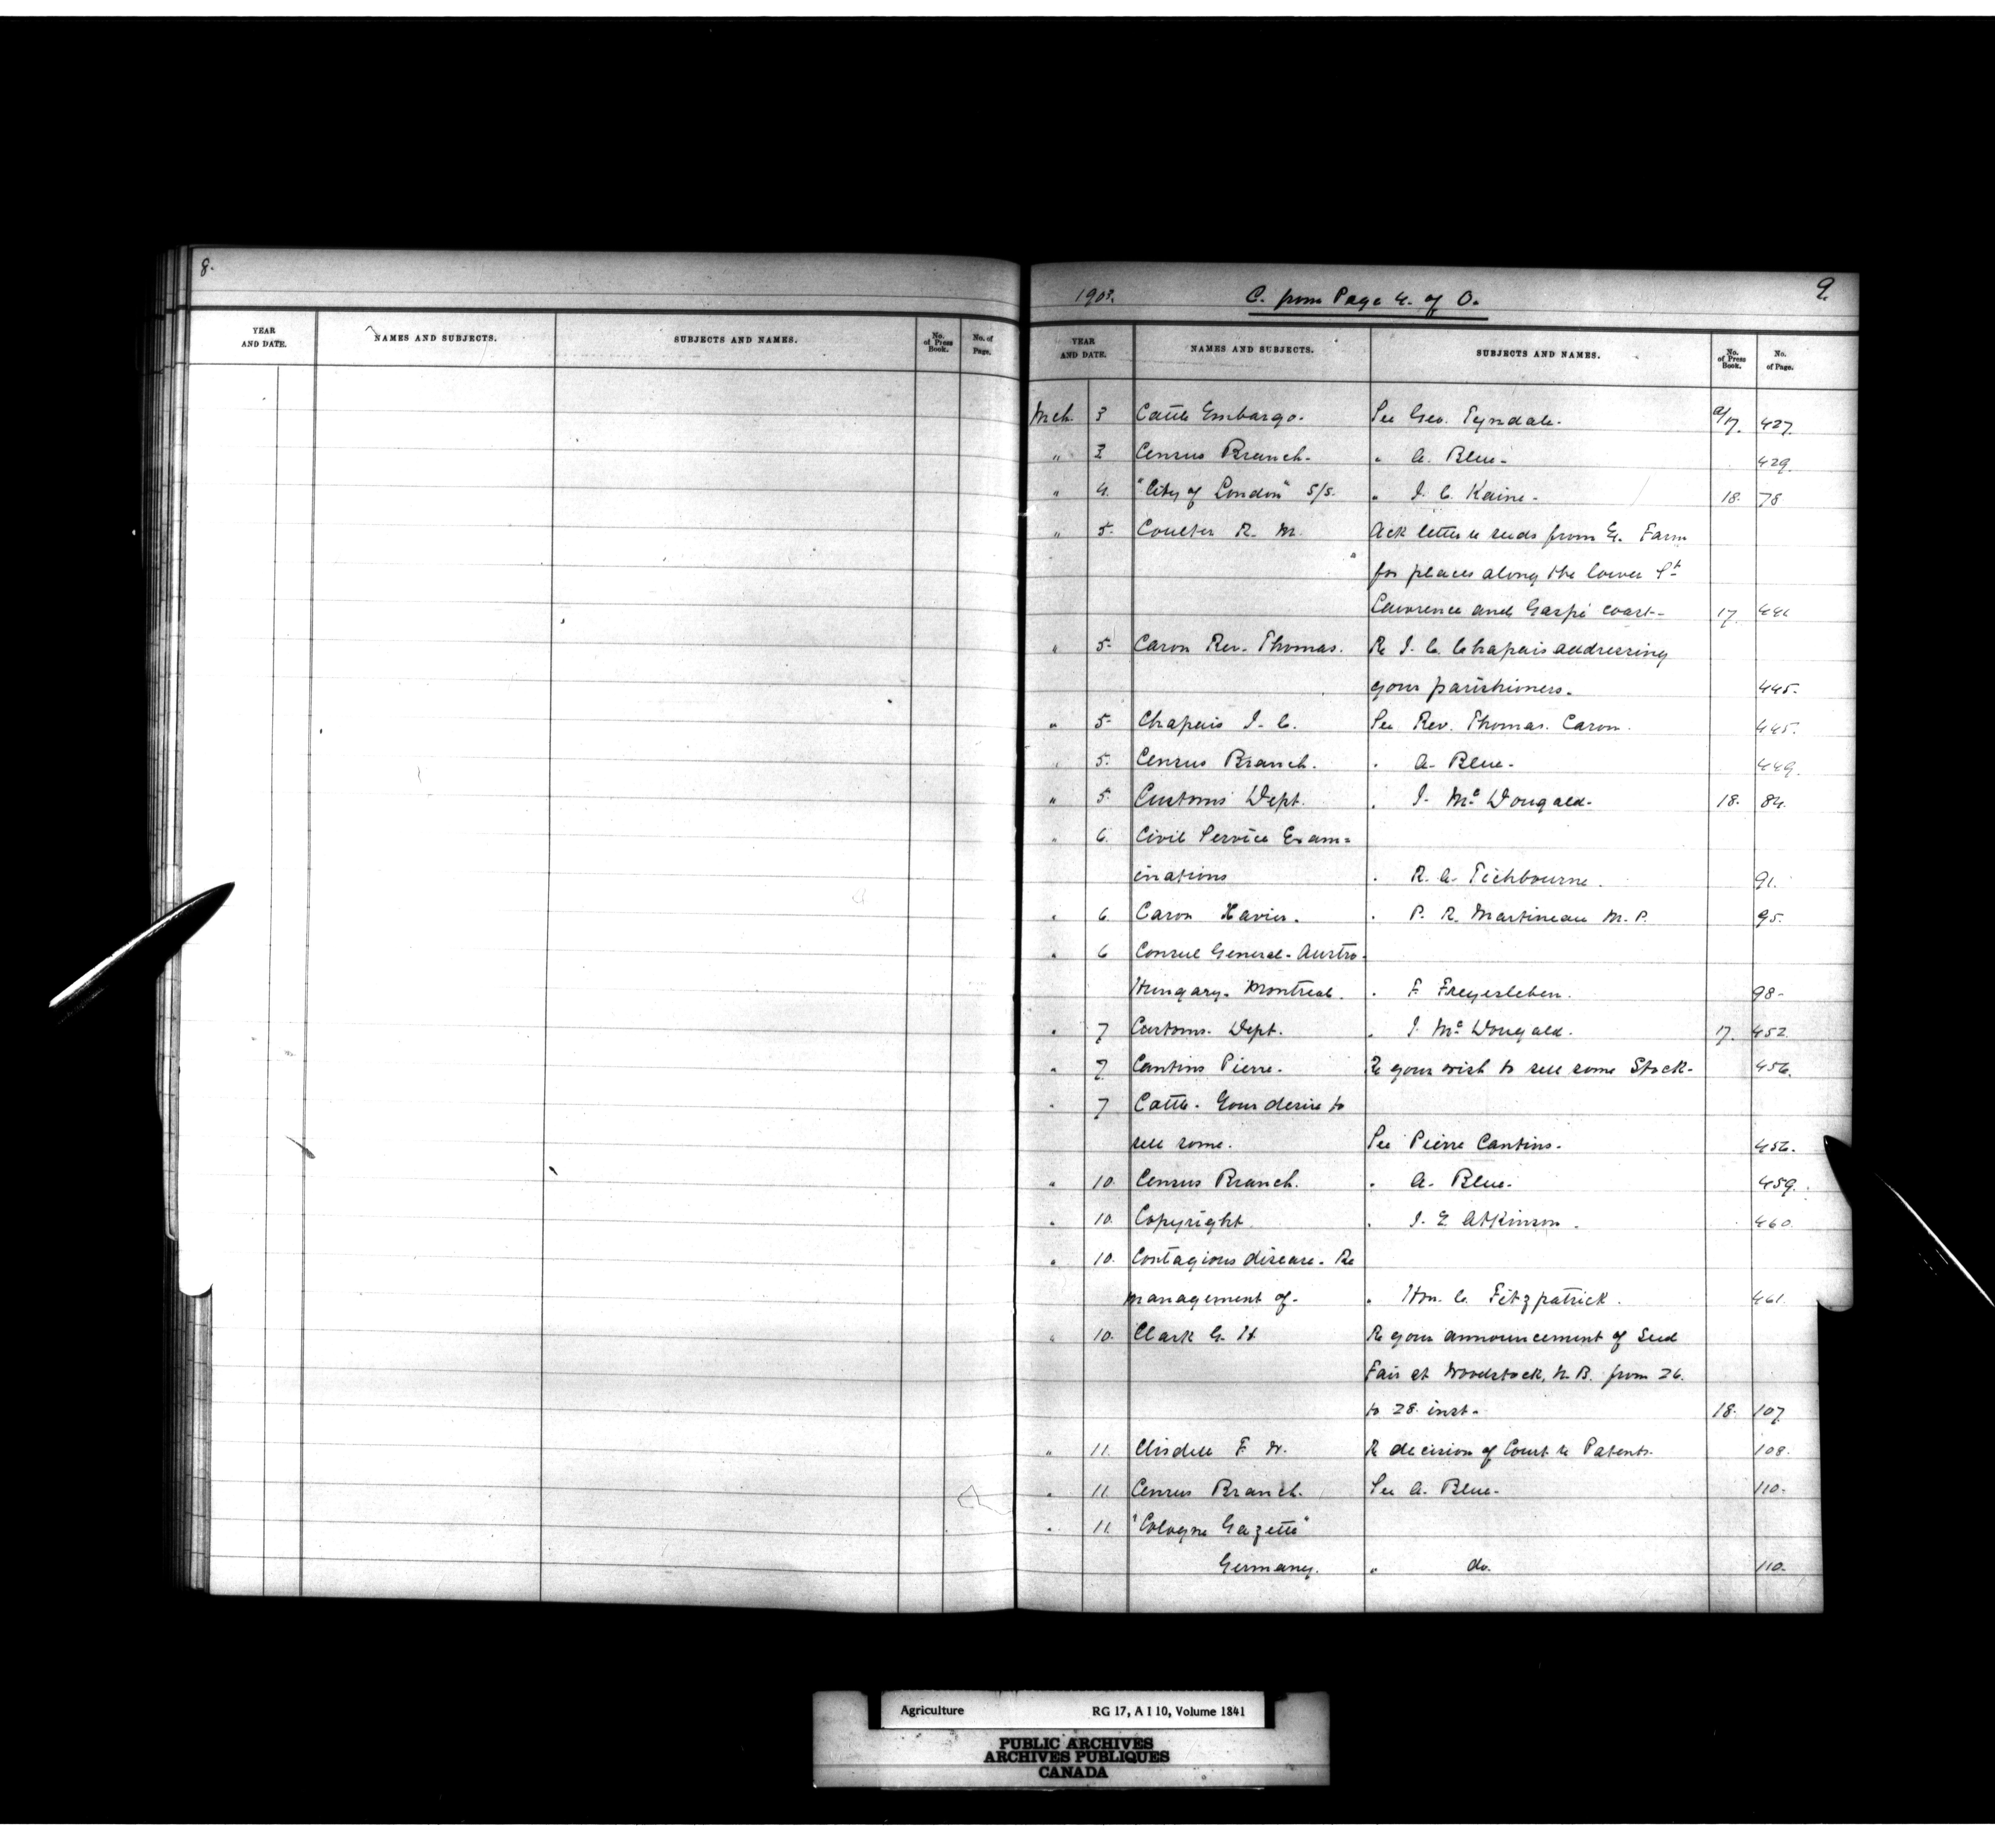 8.
YEAR AND DATE. NAMES AND SUBJECTS. SUBJECTS AND NAMES. No. of Press Book. No. of Page.
1903. C. from Page 4. of O. 9.
YEAR AND DATE. NAMES AND SUBJECTS. SUBJECTS AND NAMES. No. of Press Book. No. of Page.
Mch. 3 Cattle Embargo. See Geo. Tyndale. a/17. 427.
" 3 Census Branch. " A. Blue. 429.
" 4. "City of London" S/S. " J. C. Kaine. 18. 78
" 5. Coulter R. M. Ack letter re seeds from E. Farm
for places along the lower St
Lawrence and Gaspé coast. 17. 441
" 5. Caron Rev. Thomas. Re J. C. Chapais addressing
your parishioners. 445.
" 5. Chapais J. C. See Rev. Thomas. Caron. 445.
" 5. Census Branch. " A. Blue. 449.
" 5. Customs Dept. " J. Mc Dougald. 18. 84.
" 6. Civil Service Exam=
inations " R. A. Tichbourne. 91.
" 6. Caron Xavier. " P. R. Martineau M. P. 95.
" 6 Consul General. Austro.
Hungary. Montreal. " F. Freyesleben. 98.
" 7 Customs. Dept. " J. Mc Dougald. 17. 452.
" 7 Cantins Pierre. Re your wish to sell some Stock. 456.
" 7 Cattle. Your desire to
sell some. See Pierre Cantins. 456.
" 10. Census Branch. " A. Blue. 459.
" 10. Copyright. " J. E. Atkinson. 460.
" 10. Contagious disease. Re
management of. " Hon. C. Fitzpatrick. 461.
" 10. Clark G. H Re your announcement of Seed
Fair at Woodstock, N. B. from 26.
to 28. inst. 18. 107.
" 11. Clisdell F. W. Re decision of Court re Patents. 108.
" 11. Census Branch. See A. Blue. 110.
" 11. "Cologne Gazette"
Germany. " do. 110.
Agriculture RG 17, A I 10, Volume 1841
PUBLIC ARCHIVES
ARCHIVES PUBLIQUES
CANADA